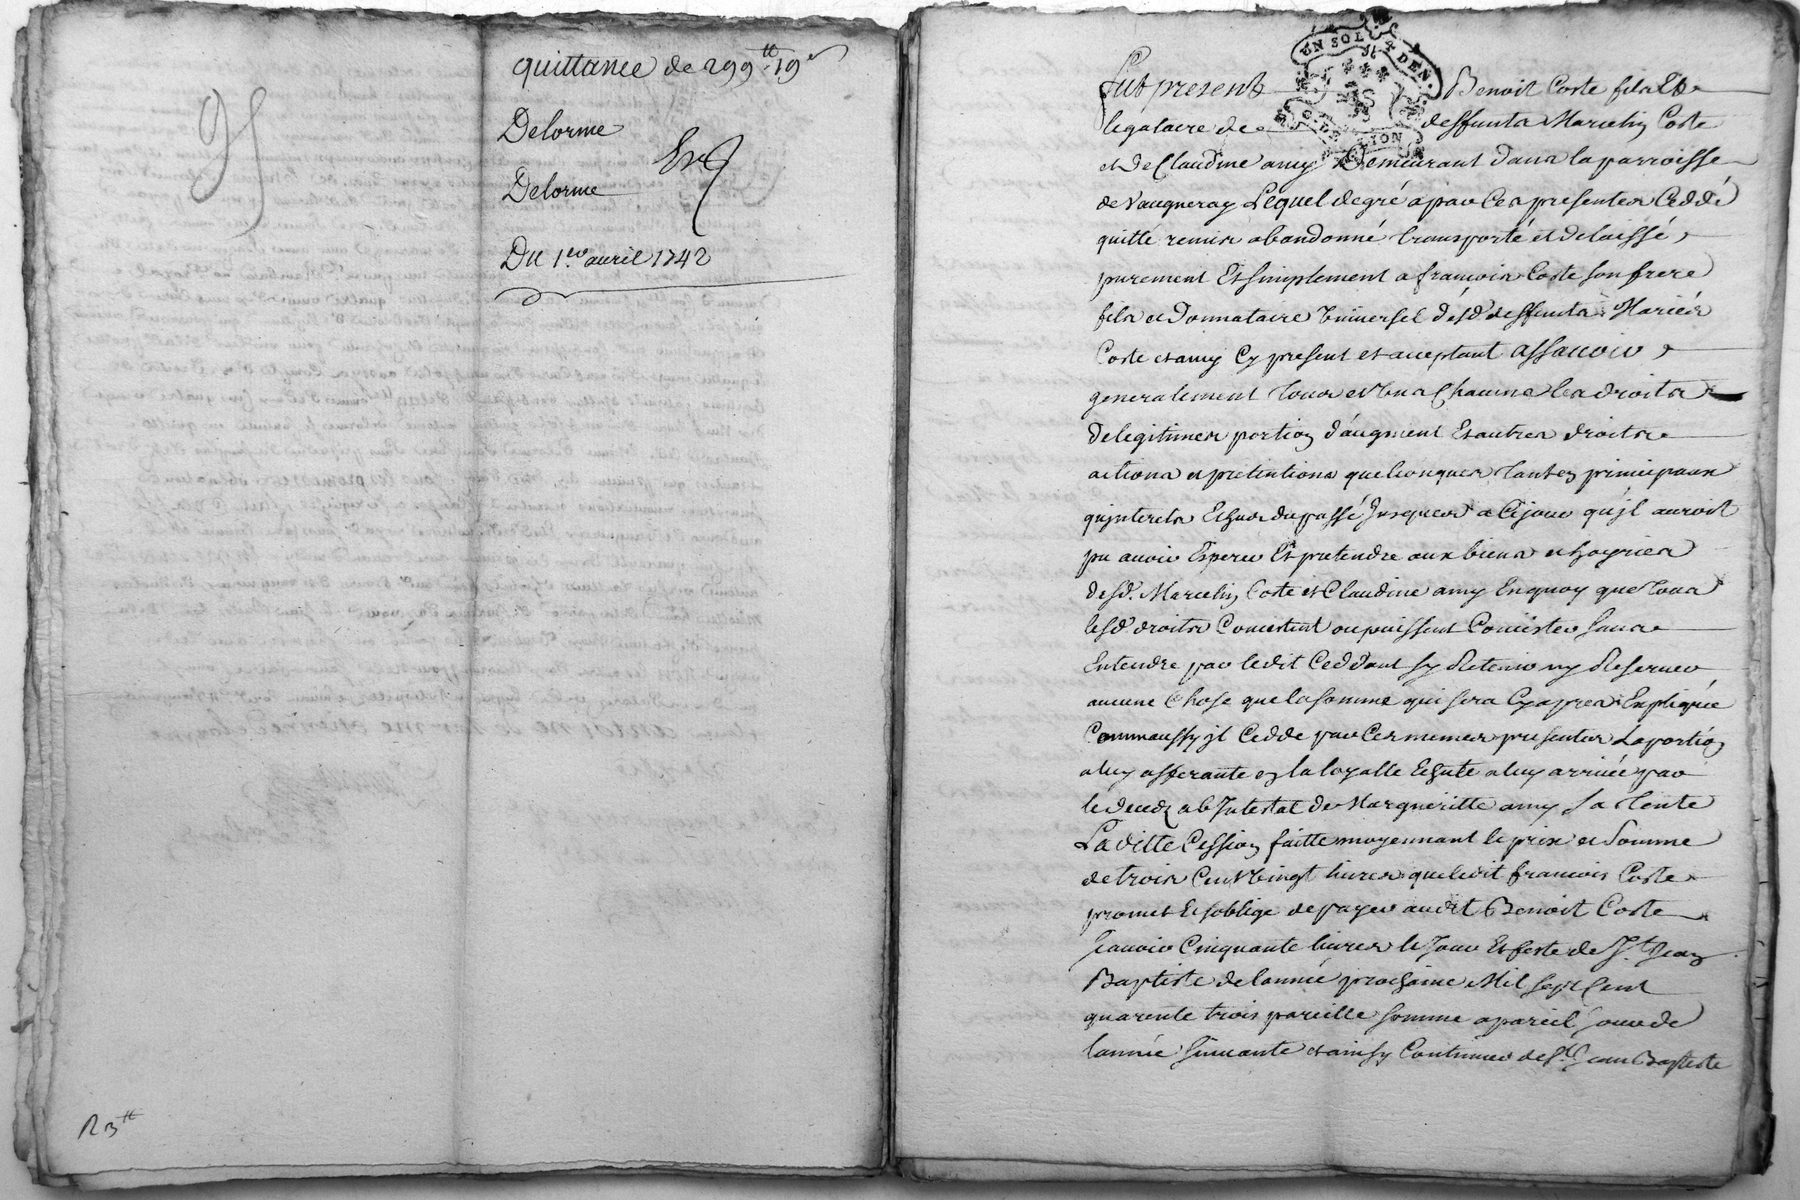 95
quittance de 299tt 19s
Delorme
Delorme
Du 1er avril 1742
R 3tt
EN SOL 4 DEN
G. DE LION
fut present Benoit Coste fils Et
legataire de deffunts Marcelin Coste
et de Claudine amy Demeurant dans la parroisse
de Vaugneray Lequel de gré a par Ces presentes Ceddé
quitté remis abandonné transporté et delaissé
purement Et simplement a francois Coste son frere
fils et Donnataire Universel desd. deffunts Mariés
Coste et amy Cy present et acceptant assavoir
generalement tous et Uns Chacuns les droits
De legitimes portion d'augment Et autres droits
actions et pretentions quelconques tant en principaux
qu'interets Echus du passé Jusques a Ce jour qu'jl auroit
pu avoir Esperer Et pretendre aux biens et hoyries
desd. Marcelin Coste et Claudine amy En quoy que tous
lesd. droits Concistent ou puissent Concister sans
Entendre par ledit Ceddant sy Retenir ny Reserver
aucune Chose que la somme qui sera Cy apres Expliquée
Comm aussy jl Cedde par Ces memes presentes La portion
a luy afferante en la loyalle Echute a luy arrivée par
le decedz ab Intestat de Margueritte amy sa tente
La ditte Cession faitte moyennant le prix et somme
de trois Cent Vingt livres que ledit francois Coste
promet Et soblige de payer audit Benoit Coste
scavoir Cinquante livres le Jour Et feste de St. Jean
Baptiste de lannée prochaine Mil sept Cent
quarente trois pareille somme a pareil jour de
lannée suivante et ainsy Continuer de St. Jean Baptiste